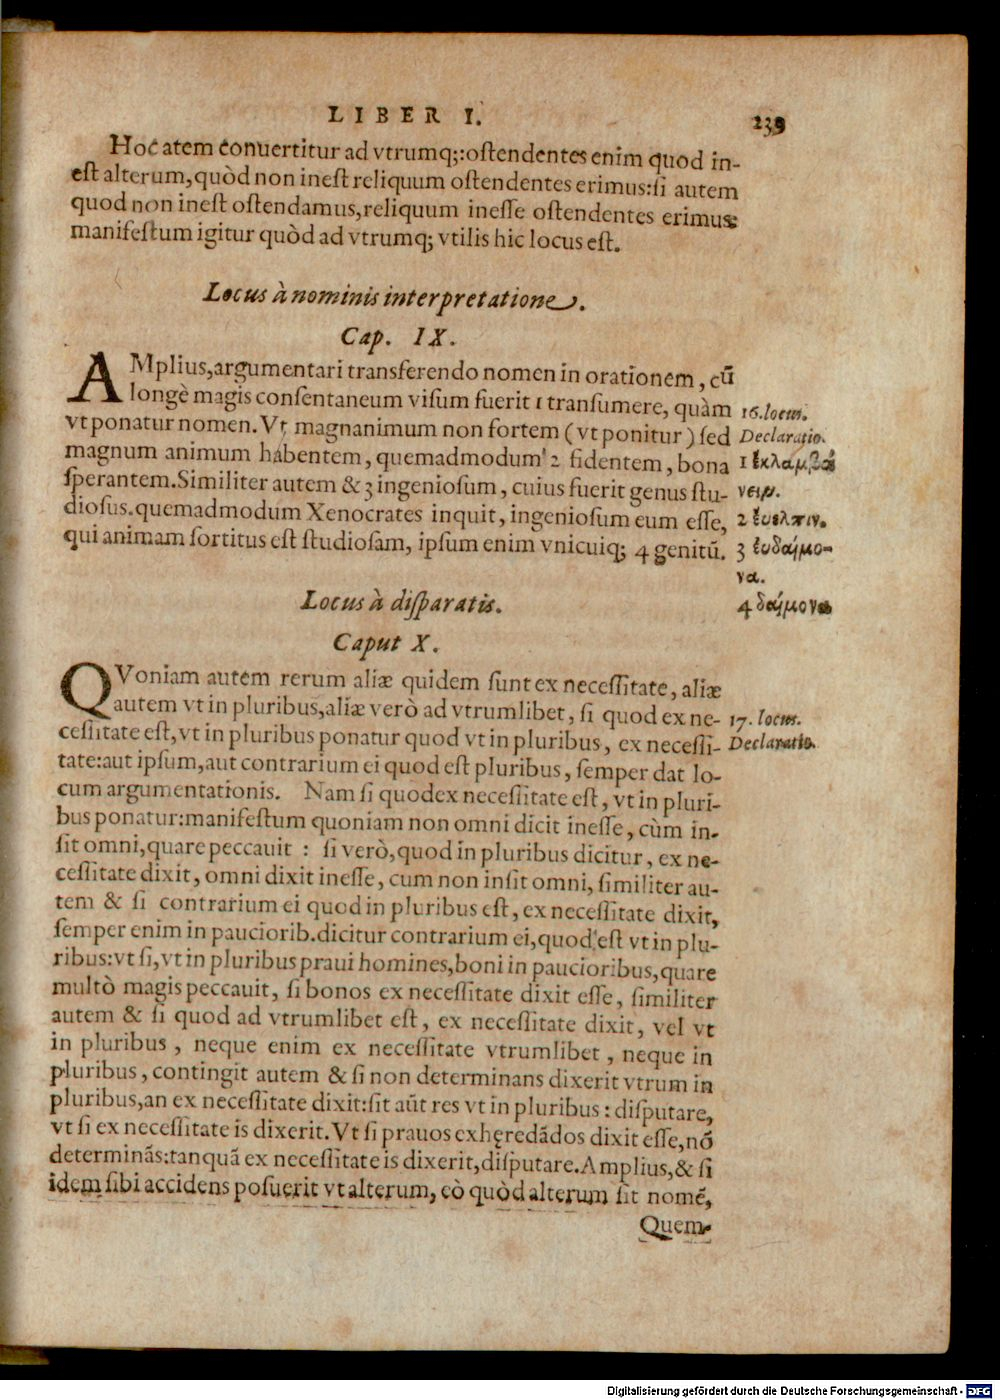 LIBER I. 239
Hoc atem conuertitur ad vtrumq;:ostendentes enim quod in-
est alterum, quòd non inest reliquum ostendentes erimus: si autem
quod non inest ostendamus, reliquum inesse ostendentes erimus:
manifestum igitur quòd ad vtrumq; vtilis hic locus est.
Locus à nominis interpretatione.
Cap. IX.
AMplius, argumentari transferendo nomen in orationem, cũ
longè magis consentaneum visum fuerit 1 transumere, quàm
vt ponatur nomen. Vt magnanimum non fortem (vt ponitur) sed
magnum animum habentem, quemadmodum 2 fidentem, bona
sperantem. Similiter autem & 3 ingeniosum, cuius fuerit genus stu-
diosus. quemadmodum Xenocrates inquit, ingeniosum eum esse,
qui animam sortitus est studiosam, ipsum enim vnicuiq; 4 genitũ.
16. locus.
Declaratio.
1 ἐκλαμβά
νειν.
2 ἐυελπιν.
3 ἐυδαίμο-
να.
4 δαίμονα
Locus à disparatis.
Caput X.
QVoniam autem rerum aliæ quidem sunt ex necessitate, aliæ
autem vt in pluribus, aliæ verò ad vtrumlibet, si quod ex ne-
cessitate est, vt in pluribus ponatur quod vt in pluribus, ex necessi-
tate: aut ipsum, aut contrarium ei quod est pluribus, semper dat lo-
cum argumentationis. Nam si quodex necessitate est, vt in pluri-
bus ponatur: manifestum quoniam non omni dicit inesse, cùm in-
sit omni, quare peccauit : si verò, quod in pluribus dicitur, ex ne-
cessitate dixit, omni dixit inesse, cum non insit omni, similiter au-
tem & si contrarium ei quod in pluribus est, ex necessitate dixit,
semper enim in pauciorib. dicitur contrarium ei, quod est vt in plu-
ribus: vt si, vt in pluribus praui homines, boni in paucioribus, quare
multò magis peccauit, si bonos ex necessitate dixit esse, similiter
autem & si quod ad vtrumlibet est, ex necessitate dixit, vel vt
in pluribus, neque enim ex necessitate vtrumlibet, neque in
pluribus, contingit autem & si non determinans dixerit vtrum in
pluribus, an ex necessitate dixit: sit aũt res vt in pluribus: disputare,
vt si ex necessitate is dixerit. Vt si prauos exhęredãdos dixit esse, nõ
determinãs: tanquã ex necessitate is dixerit, disputare. Amplius, & si
idem sibi accidens posuerit vt alterum, eò quòd alterum sit nomẽ,
17. locus.
Declaratio.
Quem-
Digitalisierung gefördert durch die Deutsche Forschungsgemeinschaft - DFG